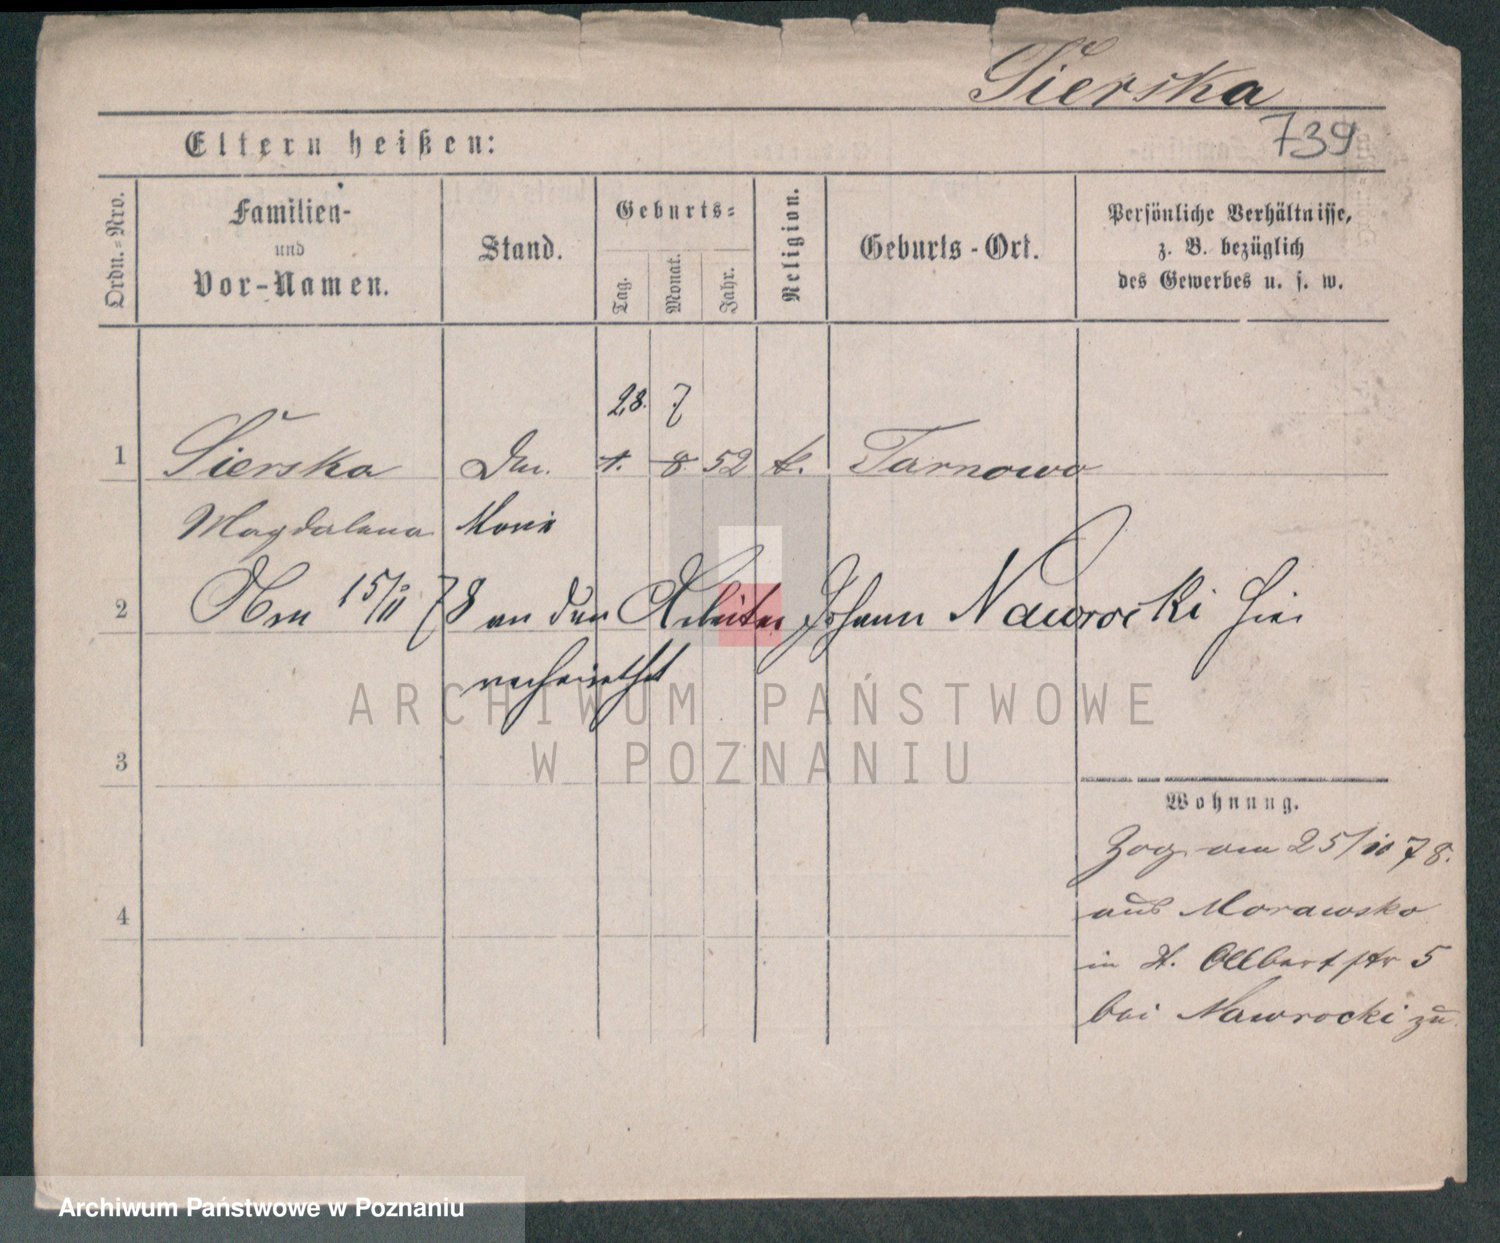 Sierska
739
Eltern heißen:
Ordn.-Nro.
Familien-
und
Vor-Namen.
Stand.
Geburts-
Tag.
Monat.
Jahr.
Religion.
Geburts-Ort.
Persönliche Verhältnisse,
z. B. bezüglich
des Gewerbes u. s. w.
28. 7
1 Sierska 1. 8 52 k. Tarnowo
Magdalena
2 Am 15/11 78 an den Arbeiter Johann Nawrocki hier
verheirathet
3
Wohnung.
Zog am 25/10 78.
aus Morawsko
in St. str 5
4
bei Nawrocki zu
ARCHIWUM PAŃSTWOWE
W POZNANIU
Archiwum Państwowe w Poznaniu